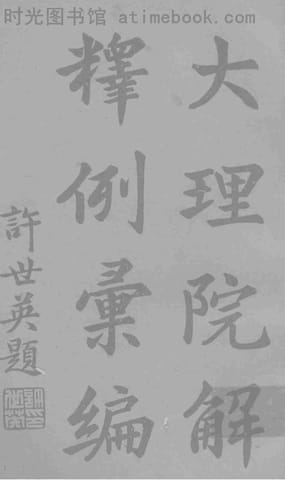 时光图书馆 atimebook.com
大理院解
釋例彙编
許世英題